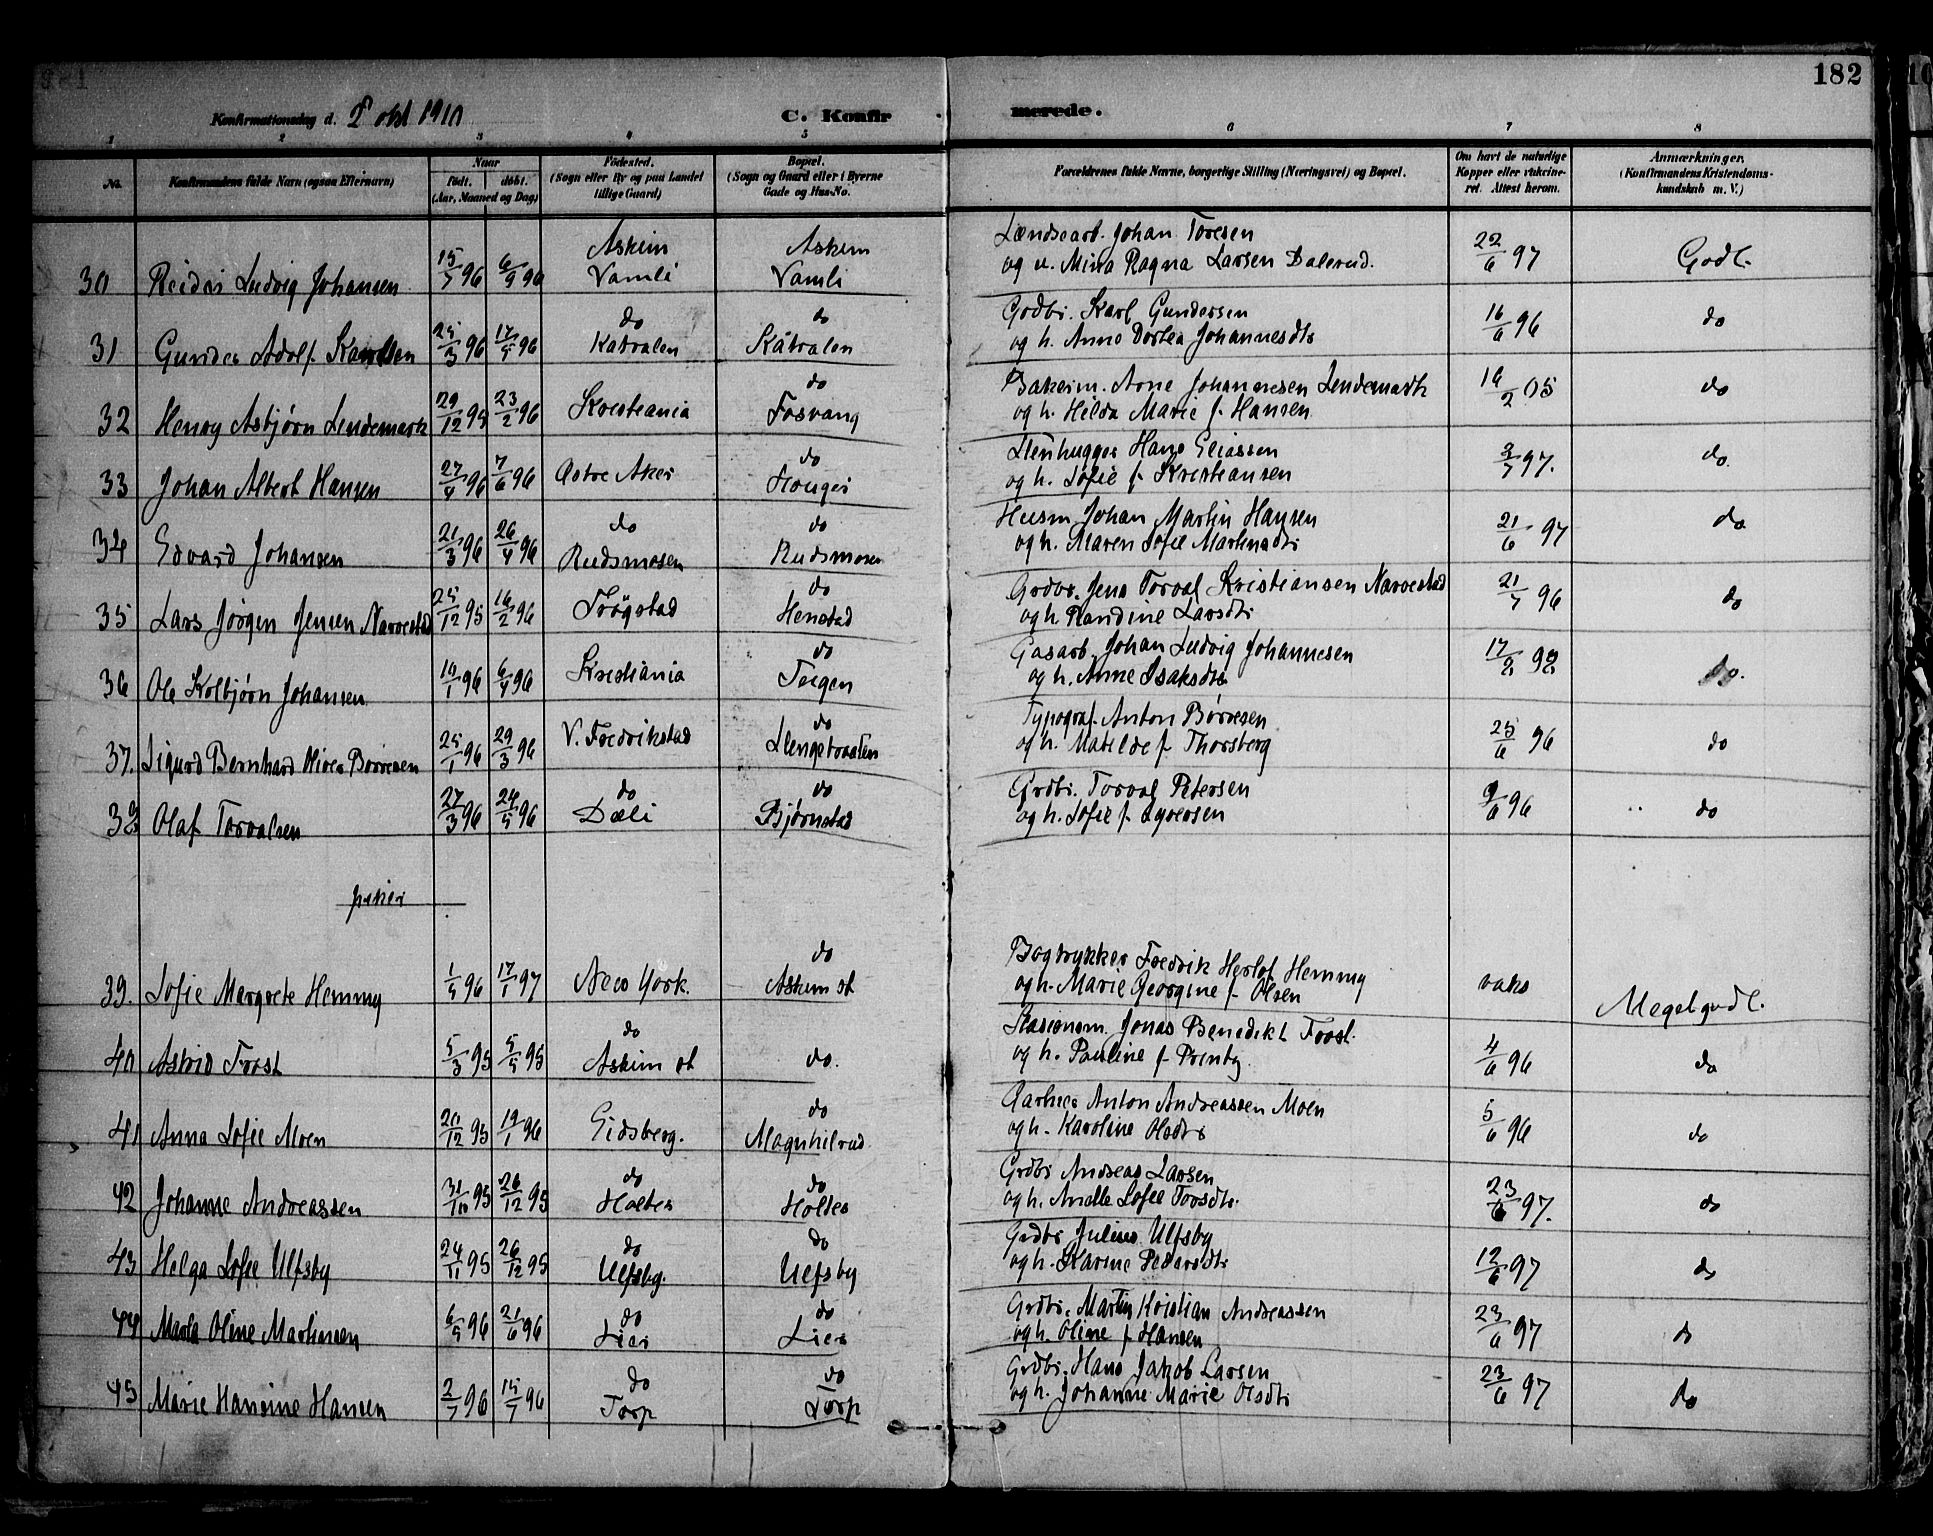 182
Konfirmationsdag d. 2 okt 1910 C. Konfirmerede.
1 2 3 4 5 6 7 8
No. Konfirmandens fulde Navn (ogsaa Efternavn) Naar født. døbt. (Aar, Maaned og Dag) Fødested. (Sogn eller By og paa Landet tillige Gaard) Bopæl. (Sogn og Gaard eller i Byerne Gade og Hus-No. Forældrenes fulde Navne, borgerlige Stilling (Næringsvei) og Bopæl. Om havt de naturlige Kopper eller vakcineret. Attest herom. Anmærkninger. (Konfirmandens Kristendomskundskab m. V.)
30 Reidar Ludvig Johansen 15/7 96 6/9 96 Askim Vamli Askim Vamli Lændsearb. Johan Toresen
og u. Mina Ragna Larsen Dalerud. 22/6 97 Godt.
31 Gunder Adolf Karlsen 25/3 96 17/5 96 do Katralen do Kåtralen Grdbr. Karl Gundersen
og h. Anne Dortea Johannesdtr 16/6 96 do
32 Henry Asbjørn Lendemark 29/12 95 23/2 96 Kristiania do Fosvang Arne Johannesen Lendemark
og h. Hilda Marie f. Hansen 16/2 05 do
33 Johan Albert Hansen 27/4 96 7/6 96 Østre Aker do Stenhugger Hans Eliassen
og h. Sofie f. Kristiansen 3/7 97. do.
34 Edvard Johansen 21/3 96 26/4 96 do Rudsmosen do Rudsmosen Husm Johan Martin Hansen
og h. Maren Sofie Martinsdtr 21/6 97 do
35 Lars Jørgen Jensen Narvestad 25/12 95 16/2 96 Trøgstad do Henstad Grdbr. Jens Torval Kristiansen Narvestad
og h. Randine Larsdtr 21/7 96 do
36 Ole Kolbjørn Johansen 10/1 96 6/4 96 Kristiania do Teigen Gasarb. Johan Ludvig Johannesen
og h. Anne Isaksdtr 17/2 98 do.
37. Sigurd Bernhard Børresen 25/1 96 29/3 96 V. Fredrikstad do Slengebraaten Typograf. Anton Børresen
og h. Matilde f. Thorsberg 25/6 96 do
38 Olaf Torvalsen 27/3 96 24/5 96 do Dæli do Bjørnstad Grdbr. Torval Petersen
og h. Sofie f. Syversen 9/6 96 do
piker
39. Sofie Margrete Hemmy 1/5 96 17/1 97 New York. do Askim st Bogtrykker Fredrik Herlof Hemmy
og h. Marie Georgine f. Olsen vaks Megetgodt.
40 Astrid Frost 5/3 95 5/5 95 do Askim st do. Stasionsm. Jonas Benedikt Frost.
og h. Pauline f. Prinby. 4/6 96 do
41 Anna Sofie Moen 20/12 95 19/1 96 Eidsberg. do Magnhilrud Aarhus Anton Andreassen Moen
og h. Karoline Olsdtr 5/6 96 do
42 Johanne Andreassen 31/10 95 26/12 95 do Holter do Holter Grdbr Andreas Larsen
og h. Anette Sofie Torsdtr. 23/6 97. do
43 Helga Sofie Ulfsby 24/11 95 26/12 95 do Ulfsby. do Ulfsby Grdbr Julius Ulfsby
og h. Karine Pedersdtr 12/6 97 do
44 Marta Oline Martinsen 6/5 96 21/6 96 do Lier do Lier Grdbr. Martin Kristian Andreassen
og h. Oline f. Hansen 23/6 97 do
45 Marie Hansine Hansen 2/5 96 15/7 96 do Torp do Torp Grdbr. Hans Jakob Larsen
og h. Johanne Marie Olsdtr 23/6 97 do